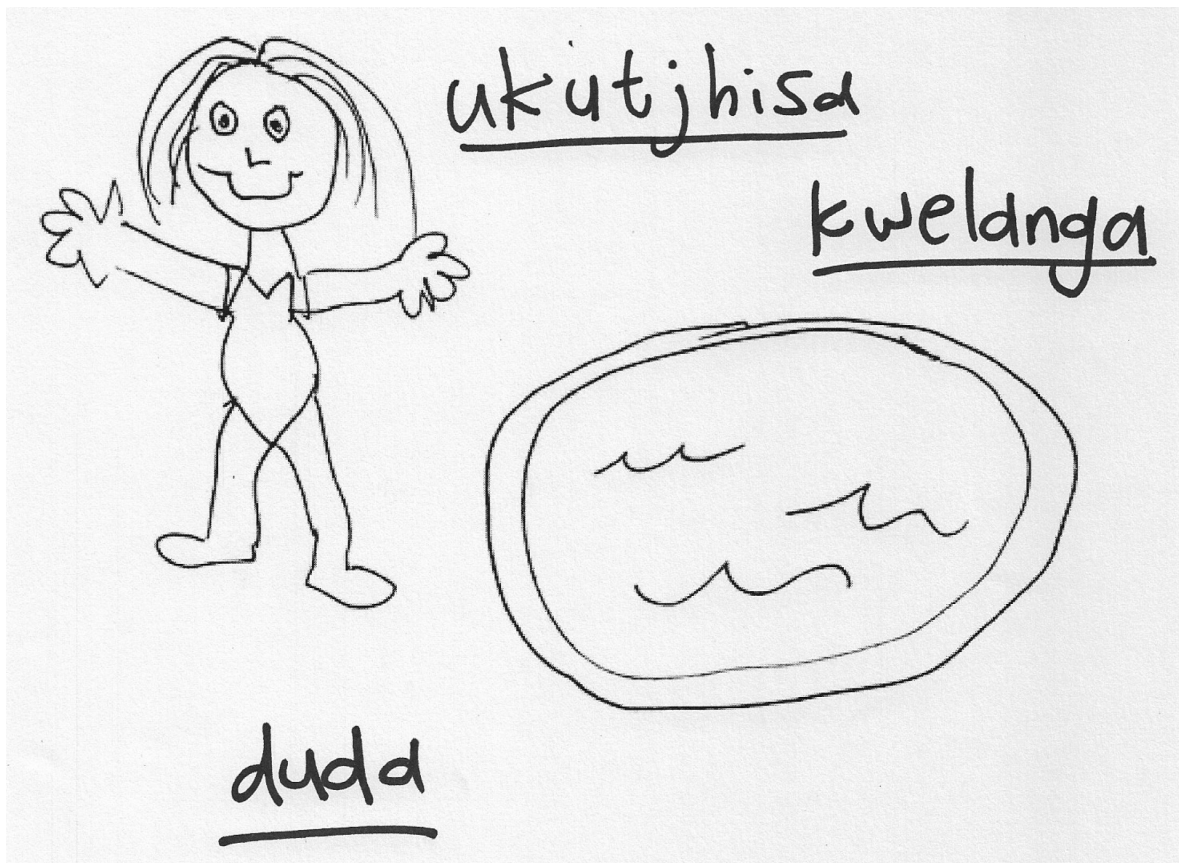 ukutjhisa
kwelanga
duda